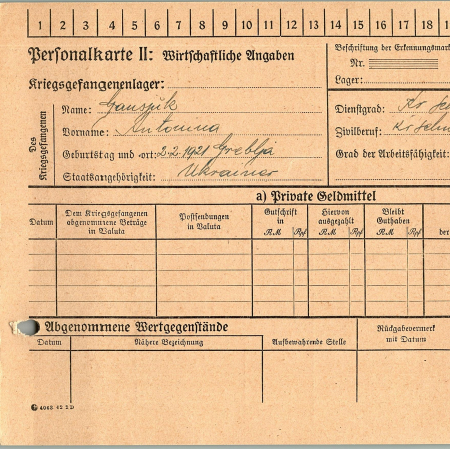 1 2 3 4 5 6 7 8 9 10 11 12 13 14 15 16 17 18 1
Personalkarte II: Wirtschaftliche Angaben
Beschriftung der Erkennungsmark
Nr.
Kriegsgefangenenlager:
Lager:
Des Kriegsgefangenen
Name: Gansjuk
Dienstgrad: Kr Sch
Vorname: Antonina
Zivilberuf: Kr Schw
Geburtstag und -ort: 2.2.1921 Greblja
Grad der Arbeitsfähigkeit:
Staatsangehörigkeit: Ukrainer
a) Private Geldmittel
Datum
Dem Kriegsgefangenen abgenommene Beträge in Valuta
Postsendungen in Valuta
Gutschrift in RM Rpf
Hiervon ausgezahlt RM Rpf
Bleibt Guthaben RM Rpf
der
Abgenommene Wertgegenstände
Rückgabevermerk mit Datum
Datum
Nähere Bezeichnung
Aufbewahrende Stelle
4048 42 2 D